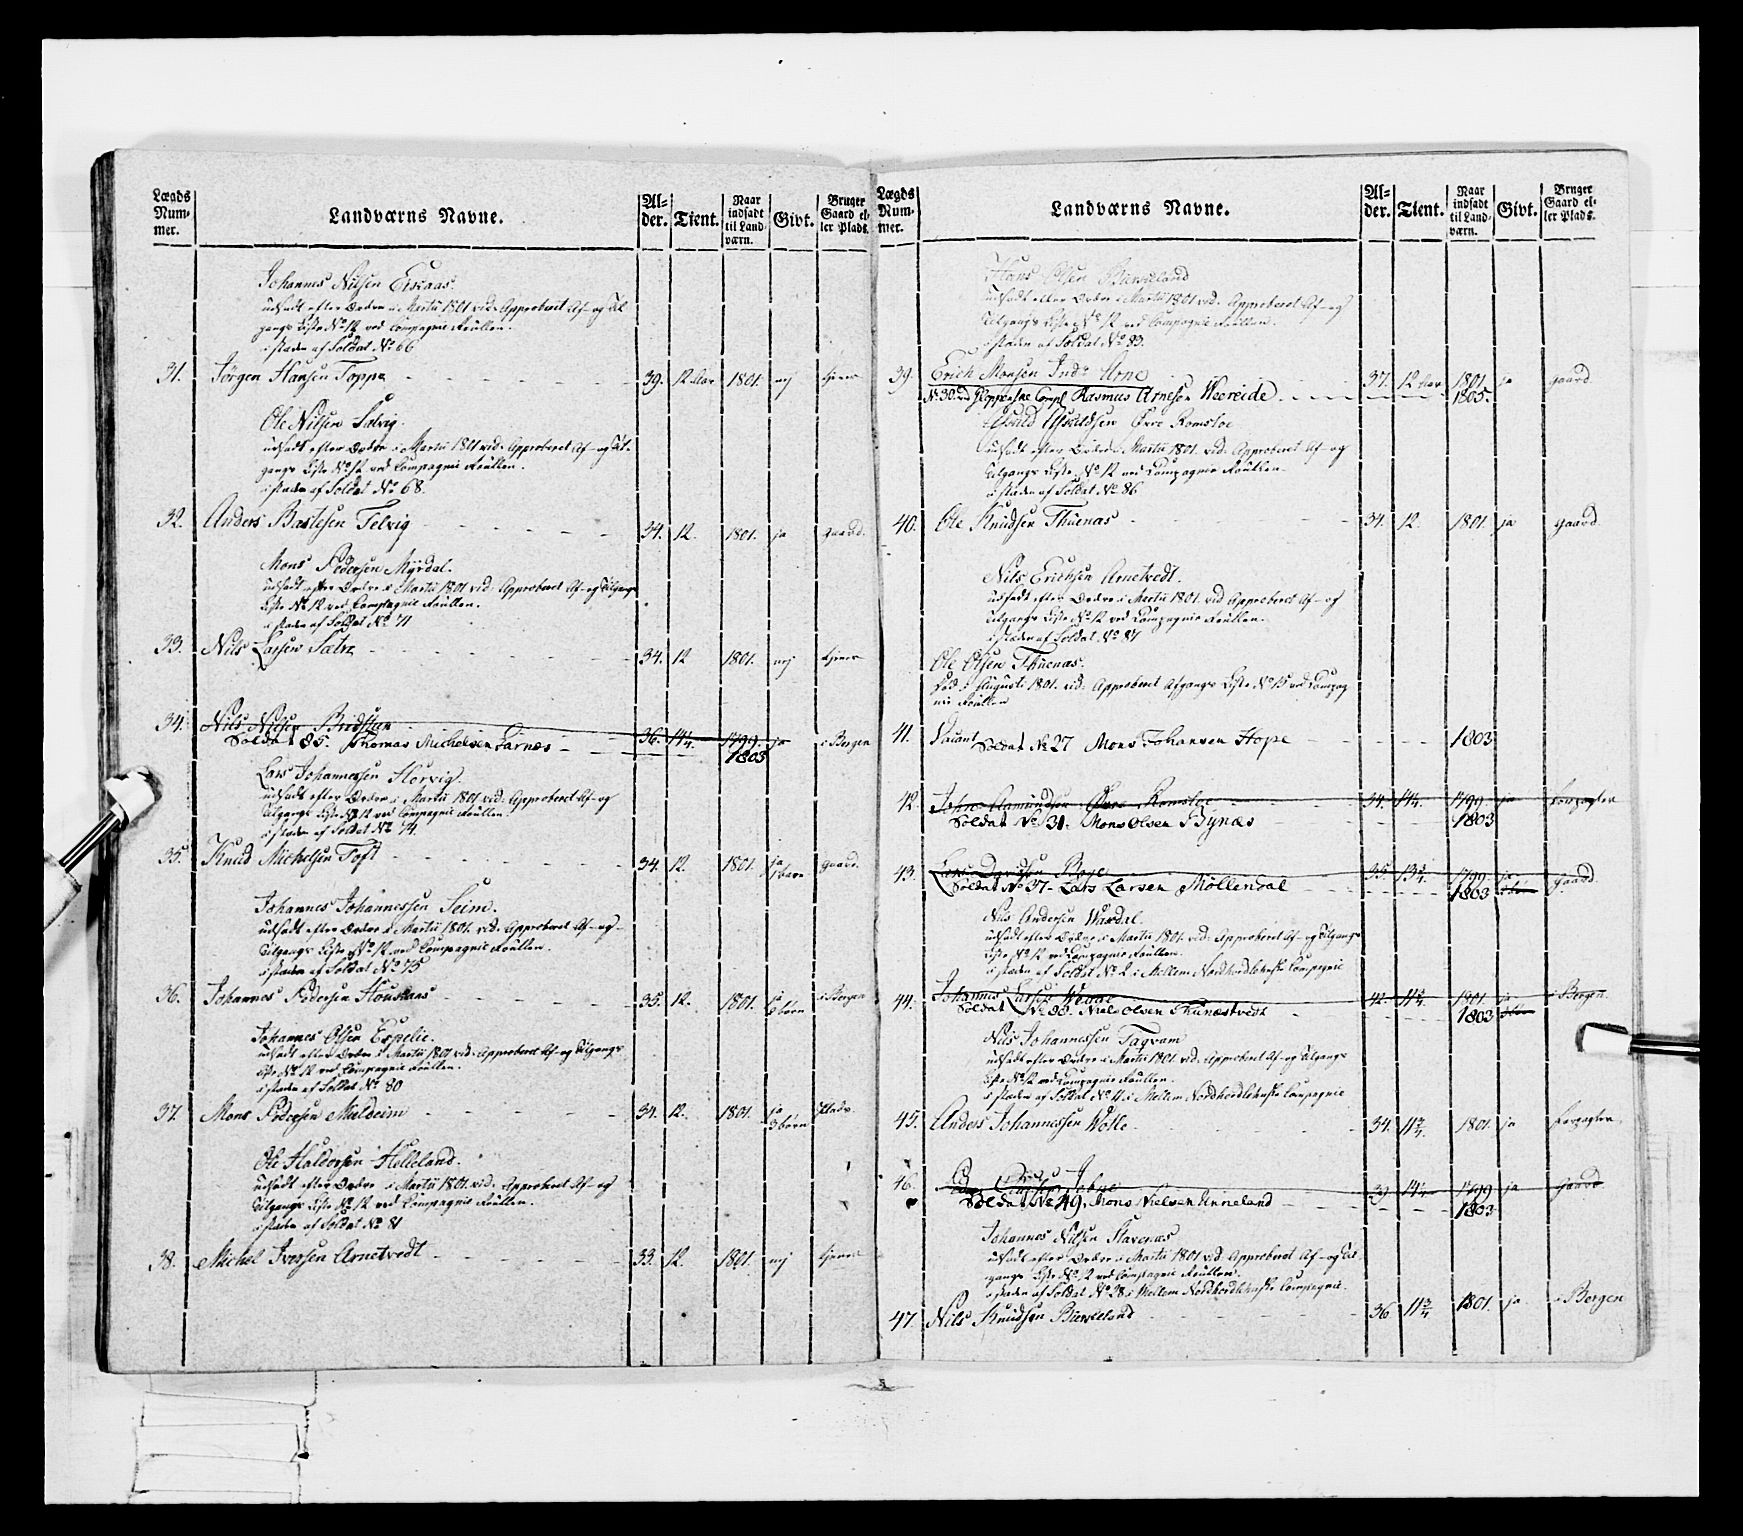 Lægds Num- mer. Landværns Navne. Al- der. Tient. Naar indsadt til Land- værn. Givt. Bruger Gaard el- ler Plads.
Johannes Nilsen
udsadt efter Ordre i Martii 1801 vid. Approberet Af- og Til
gangs Liste No 12 ved Compagnie Roullen.
i stæden af Soldat No 66
31. Jørgen Hansen Toppe 39. 12 Aar 1801. nej tjener
Ole Nilsen Sælvig
udsadt efter Ordre i Martii 1801 vid. Approberet Af- og Til-
gangs Liste No 12 ved Compagnie Roullen.
i stæden af Soldat No 68.
32. Anders Bastesen Telvig 34. 12. 1801. ja gaard.
Mons Pedersen Myrdal.
udsadt efter Ordre i Martii 1801 vid. Approberet Af- og Tilgangs
Liste No 12 ved Compagnie Roullen.
i stæden af Soldat No 71
33. Nils Larsen Sætre 34. 12 1801. nej tjener
34. Nils Nilsen 36. 14¼. 1799. ja i Bergen
Soldat 85. Thomas Michelsen Farnæs 1803
Lars Johannessen Horvig.
udsadt efter Ordre i Martii 1801 vid. Approberet Af- og
Tilgangs Liste No 12 ved Compagnie Roullen.
i stæden af Soldat No 74.
35. Knud Michelsen Toft 34. 12. 1801. ja 1 barn gaard.
Johannes Johannessen Seim.
udsadt efter Ordre i Martii 1801. vid. Approberet Af- og
Tilgangs Liste No 12 ved Compagnie Roullen.
i stæden af Soldat No 75
36. Johannes Pedersen Housaas 35. 12. 1801. ja børn i Bergen
Johannes Olsen Espelie.
udsadt efter Ordre i Martii 1801 vid. Approberet Af- og Tilgangs
Liste No 12 ved Compagnie Roullen.
i stæden af Soldat No 80
37. Mons Pedersen Mieldeim 34. 12. 1801. ja 3 børn Plads
Ole Haldorsen Helleland.
udsadt efter Ordre i Martii 1801. vid. Approberet Af- og
Tilgangs Liste No 12 ved Compagnie Roullen.
i stæden af Soldat No 81
38. Michel Iversen Arnetvedt 33. 12. 1801. nej tjener
Lægds Num- mer. Landværns Navne. Al- der. Tient. Naar indsadt til Land- værn. Givt. Bruger Gaard el- ler Plads.
Hans Olsen Birkeland
udsadt efter Ordre i Martii 1801 vid. Approberet Af- og
Tilgangs Liste No 12 ved Compagnie Roullen.
i stæden af Soldat No 83.
39. Erich Monsen Indr Arne 37. 12 Aar 1801. ja gaard
No 30 Gloppenske Comp. Rasmus Arnesen Weereide 1805.
Øvre Romsloe
udsadt efter Ordre i Martii 1801. vid. Approberet Af- og
Tilgangs Liste No 12 ved Compagnie Roullen.
i stæden af Soldat No 86
40. Ole Knudsen Thuenæs 34. 12. 1801 ja gaard.
Nils Erichsen Arnetvedt.
udsadt efter Ordre i Martii 1801. vid Approberet Af- og
Tilgangs Liste No 12 ved Compagnie Roullen.
i stæden af Soldat No 87
Ole Olsen Thuenæs.
død i Augusti 1801. vid. Approberet Afgangs Liste No 15 ved Compag
nie Roullen
41. Vacant
Soldat No 27 Mons Johansen Hope 1803
42. John Aamundsen Øvre Romsloe 34. 14¼. 1799. ja
Soldat No 31. Mons Olsen Bynæs 1803
43. Lars Davidsen 35 13¾. 1799. ja gaard.
Soldat No 37. Lars Larsen Møllendal 1803
Nils Andersen Wardal.
udsadt efter Ordre i Martii 1801. vid. Approberet Af- og Tilgangs
Liste No 12 ved Compagnie Roullen.
i stæden af Soldat No 2 i Mellem Nordhordlehnske Compagnie
44. Johannes Larsen 42. 11¾. 1801 ja i Bergen
Soldat No 38. Niels Olsen Thunæstvedt 1803
Nils Johannessen Taqvam
udsadt efter Ordre i Martii 1801. vid. Approberet Af- og Tilgangs
Liste No 12 ved Compagnie Roullen.
i stæden af Soldat No 11 i Mellem Nordhordlehnske Compagnie
45. Anders Johannessen Wolle 34. 11¾. 1801. ja
46. 39 14¼ 1799 ja gaard
Soldat No 49. Mons Nielsen Unneland 1803
Johannes Nilsen Stavenæs
udsadt efter Ordre i Martii 1801 vid. Approberet Af- og Til
gangs Liste No 12 ved Compagnie Roullen.
i stæden af Soldat No 28 i Mellem Nordhordlehnske Compagnie.
47. Nils Knudsen Birkeland 36 11¾ 1801. ja i Bergen